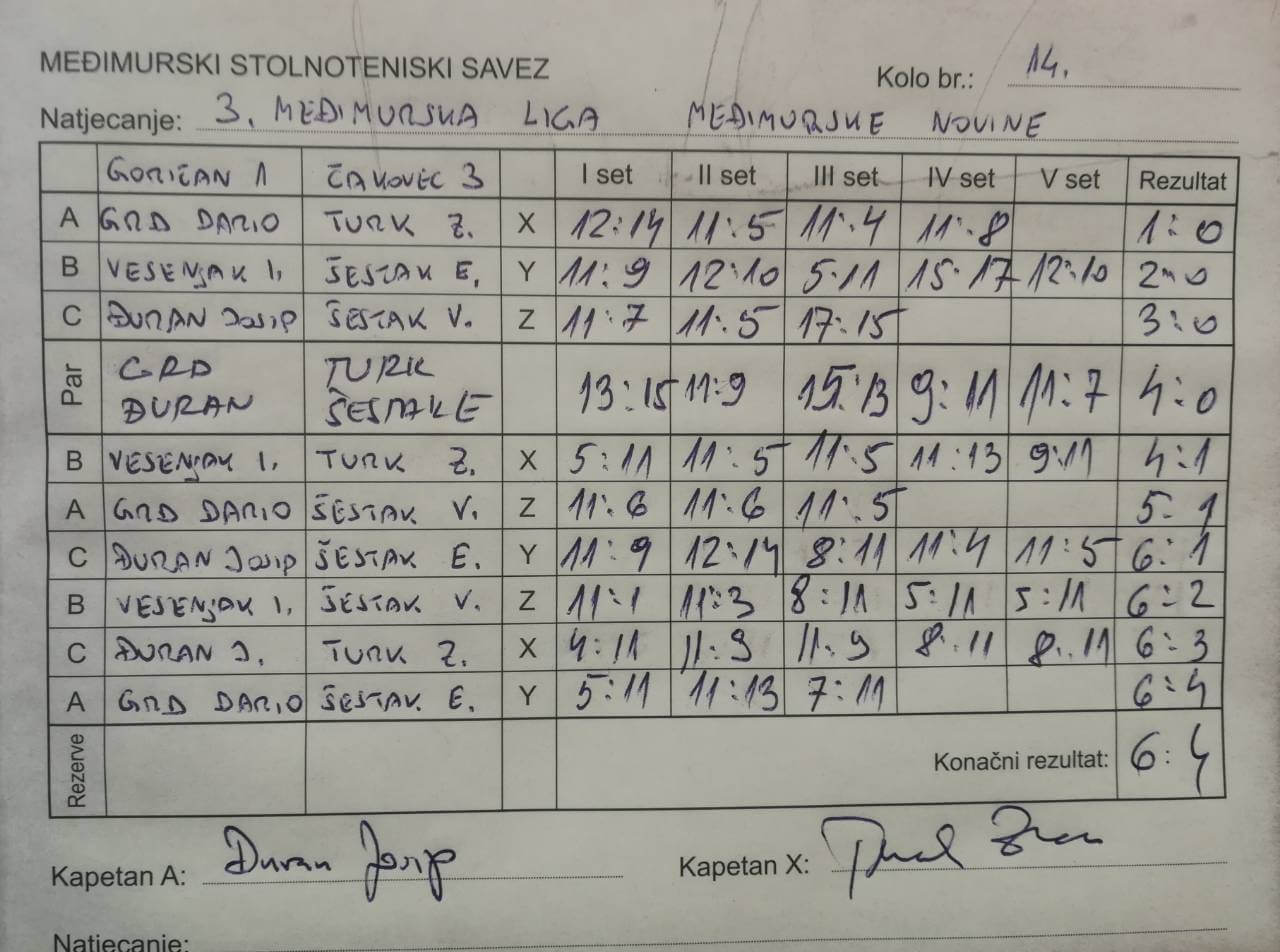 MEĐIMURSKI STOLNOTENISKI SAVEZ
Kolo br.: 14.
Natjecanje: 3. MEĐIMURSKA LIGA MEĐIMURSKE NOVINE
GORIČAN 1 ČAKOVEC 3 I set II set III set IV set V set Rezultat
A GRD DARIO TURK Z. X 12:14 11:5 11:4 11:8 1:0
B VESENJAK I. ŠESTAK E. Y 11:9 12:10 5:11 15:17 12:10 2:0
C ĐURAN Josip ŠESTAK V. Z 11:7 11:5 17:15 3:0
Par GRD TURK 13:15 11:9 15:13 9:11 11:7 4:0
ĐURAN ŠESTAK E
B VESENJAK I. TURK Z. X 5:11 11:5 11:5 11:13 9:11 4:1
A GRD DARIO ŠESTAK V. Z 11:6 11:6 11:5 5:1
C ĐURAN Josip ŠESTAK E. Y 11:9 12:14 8:11 11:4 11:5 6:1
B VESENJAK I. ŠESTAK V. Z 11:1 11:3 8:11 5:11 5:11 6:2
C ĐURAN J. TURK Z. X 4:11 11:9 11:9 8:11 8:11 6:3
A GRD DARIO ŠESTAK E. Y 5:11 11:13 7:11 6:4
Rezerve Konačni rezultat: 6:4
Kapetan A: Đuran Josip Kapetan X:
Natjecanje: